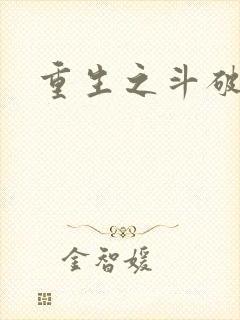 重生之斗破
金智媛